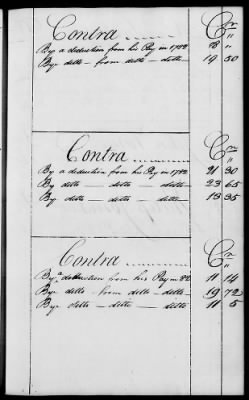 Contra Cr
By a deduction from his Pay in 1782 78 "
By ditto - from ditto - ditto 19 30
Contra Cr
By a deduction from his Pay in 1782 21 30
By ditto - ditto - ditto 23 65
By ditto - ditto - ditto 13 35
Contra Cr
By a deduction from his Pay in 82 11 14
By ditto - from ditto - ditto 19 72
By ditto - ditto - ditto 11 5